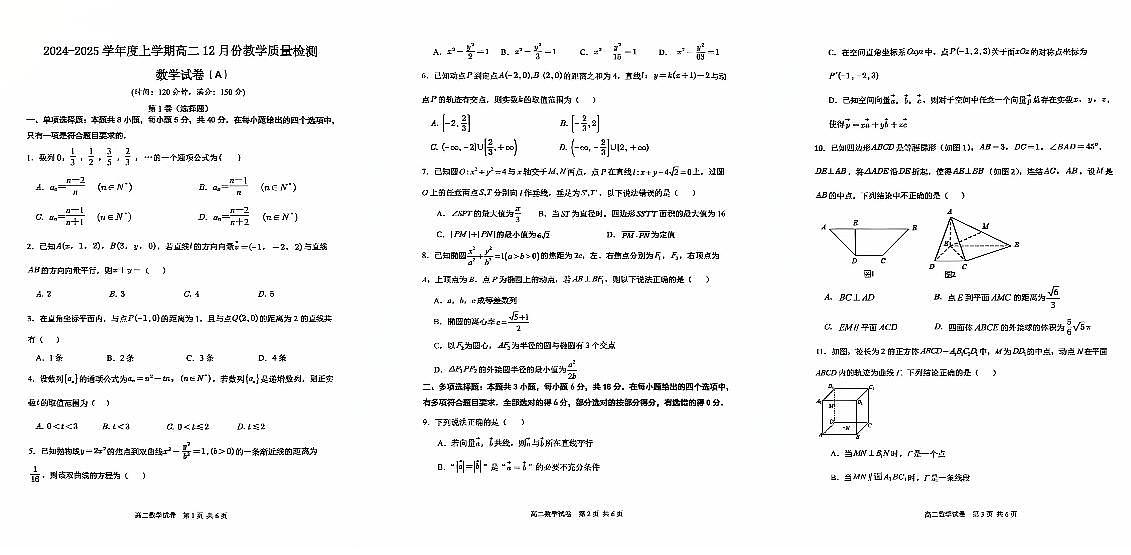 2024-2025 学年度上学期高二 12 月份教学质量检测
数学试卷（A）
（时间：120 分钟，满分：150 分）
第 I 卷（选择题）
一、单项选择题：本题共 8 小题，每小题 5 分，共 40 分。在每小题给出的四个选项中，
只有一项是符合题目要求的。
1．数列 0，1/3，1/2，3/5，2/3，…的一个通项公式为（ ）
A．aₙ=(n-2)/n （n∈N*） B．aₙ=(n-1)/n （n∈N*）
C．aₙ=(n-1)/(n+1) （n∈N*） D．aₙ=(n-2)/(n+2) （n∈N*）
2．已知A(x，1，2)，B(3，y，0)，若直线l的方向向量v=(-1，-2，2)与直线
AB的方向向量平行，则x+y=（ ）
A．2 B．3 C．4 D．5
3．在直角坐标平面内，与点P(-1,0)的距离为 1，且与点Q(2,0)的距离为 2 的直线共
有（ ）
A．1条 B．2条 C．3条 D．4条
4．设数列{aₙ}的通项公式为aₙ=n²-tn，(n∈N*)，若数列{aₙ}是递增数列，则正实
数t的取值范围为（ ）
A．0<t<3 B．t<3 C．0<t≤2 D．t≤2
5．已知抛物线y=2x²的焦点到双曲线x²-y²/b²=1,(b>0)的一条渐近线的距离为
1/16，则该双曲线的方程为（ ）
高二数学试卷 第 1 页 共 6 页
A．x²-y²/2=1 B．x²-y²/3=1 C．x²-y²/15=1 D．x²-y²/63=1
6．已知动点P到定点A(-2,0),B(2,0)的距离之和为 4，直线l：y=k(x+1)-2与动
点P的轨迹有交点，则实数k的取值范围为（ ）
A. [-2,2/3] B. [-2/3,2]
C. (-∞,-2]∪[2/3,+∞) D. (-∞,-2/3]∪[2,+∞)
7．已知圆O：x²+y²=4与x轴交于M,N两点，点P在直线l：x+y-4√2=0上，过圆
O上的任意两点S,T分别向l作垂线，垂足为S',T'，以下说法错误的是（ ）
A．∠SPT的最大值为π/3 B．当ST为直径时，四边形SST'T'面积的最大值为 16
C．|PM|+|PN|的最小值为6√2 D．PM·PN为定值
8．已知椭圆x²/a²+y²/b²=1(a>b>0)的焦距为2c，左、右焦点分别为F₁，F₂，右顶点为
A，上顶点为B，点P为椭圆上的动点，若AB⊥BF₁，则以下说法正确的是（ ）
A．a，b，c成等差数列
B．椭圆的离心率e=(√5+1)/2
C．以F₂为圆心，AF₂为半径的圆与椭圆有 3 个交点
D．△F₁PF₂的外接圆半径的最小值为a²/2b
二、多项选择题：本题共 3 小题，每小题 6 分，共 18 分。在每小题给出的四个选项中，
有多项符合题目要求。全部选对的得 6 分，部分选对的按部分得分，有选错的得 0 分。
9．下列说法正确的是（ ）
A．若向量a，b共线，则a与b所在直线平行
B．“|a|=|b|”是“a=b”的必要不充分条件
高二数学试卷 第 2 页 共 6 页
C．在空间直角坐标系Oxyz中，点P(-1,2,3)关于面xOz的对称点坐标为
P'(-1,-2,3)
D．已知空间向量a，b，c，则对于空间中任意一个向量p总存在实数x，y，z，
使得p=xa+yb+zc
10．已知四边形ABCD是等腰梯形（如图1），AB=3，DC=1，∠BAD=45°，
DE⊥AB，将△ADE沿DE折起，使得AE⊥EB（如图2），连结AC，AB，设M是
AB的中点，下列结论中不正确的是（ ）
A E B
D C
图1
A
M
E B
D C
图2
A．BC⊥AD B．点E到平面AMC的距离为√6/3
C．EM∥平面ACD D．四面体ABCE的外接球的体积为5/6√5π
11．如图，棱长为 2 的正方体ABCD-A₁B₁C₁D₁中，M为DD₁的中点，动点N在平面
ABCD内的轨迹为曲线Γ．下列结论正确的是（ ）
D₁ C₁
A₁ B₁
M
D C
N
A B
A．当MN⊥B₁N时，Γ是一个点
B．当MN∥面A₁BC₁时，Γ是一条线段
高二数学试卷 第 3 页 共 6 页